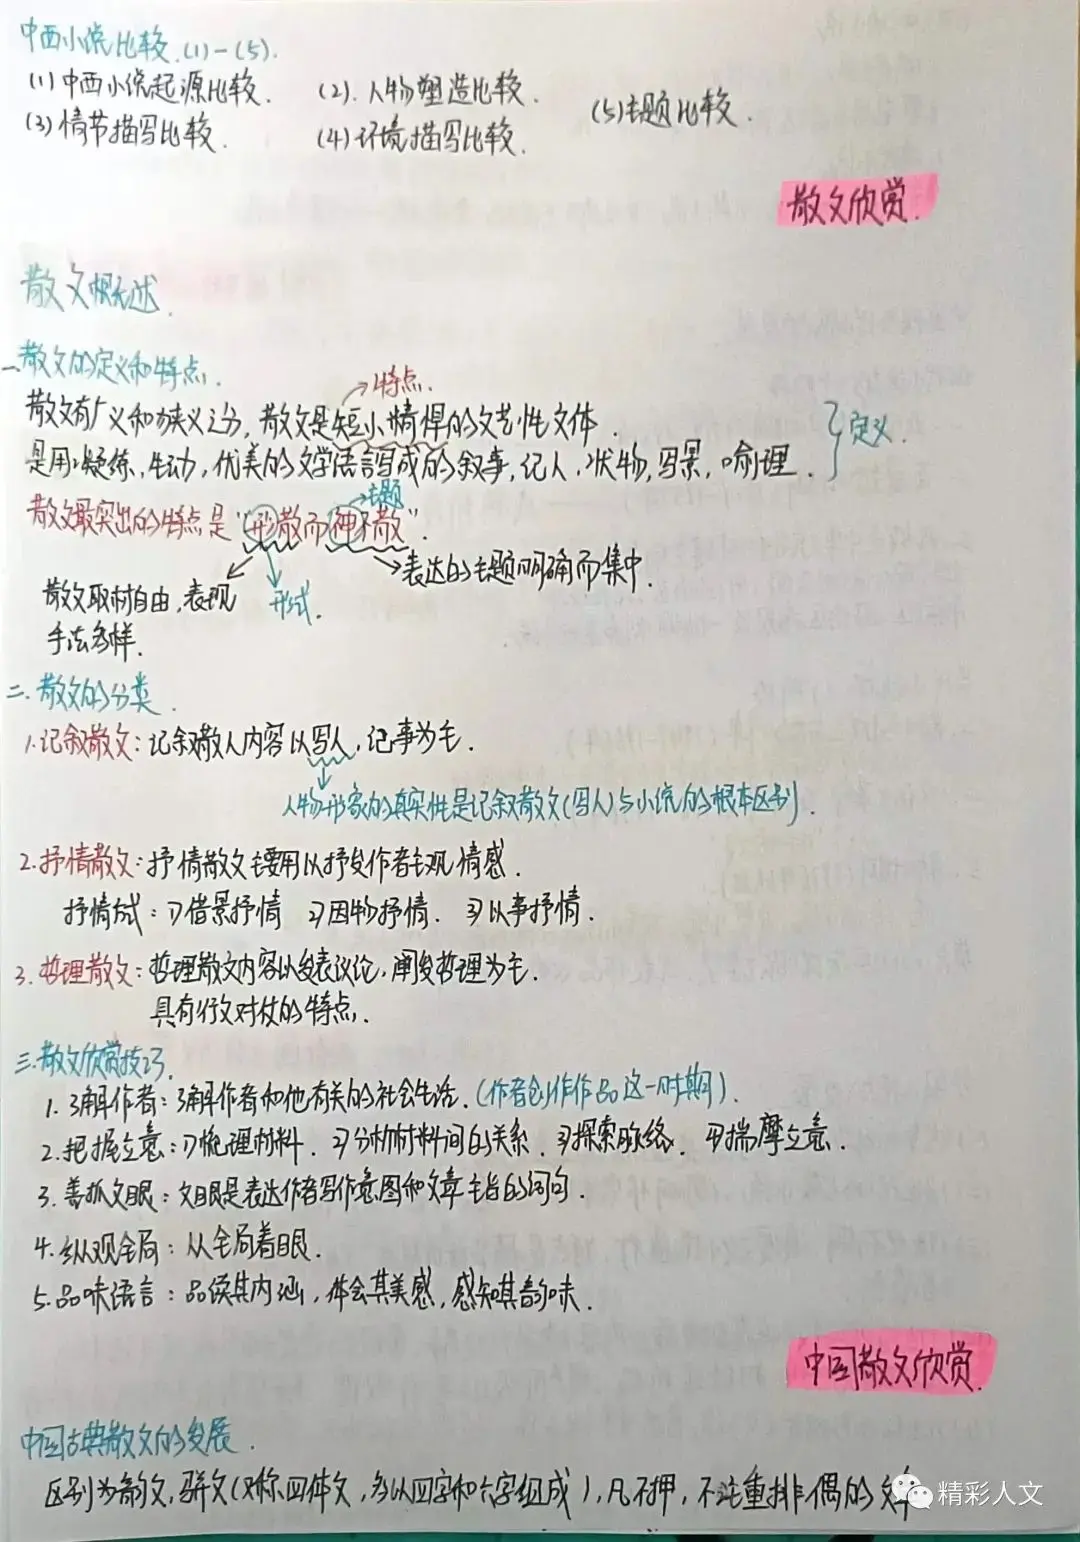 中西小说比较.(1)-(5).
(1)中西小说起源比较. (2).人物塑造比较.
(3)情节描写比较. (4)环境描写比较. (5)主题比较.
散文欣赏.
散文概述.
一.散文的定义和特点.
→特点.
散文有广义和狭义之分,散文是短小精悍的文艺性文体.
是用凝练,生动,优美的文学语言写成的叙事,记人,状物,写景,喻理. }定义.
→主题
散文最突出的特点是"形散而神不散".
→表达的主题明确而集中.
散文取材自由,表现 形式.
手法多样.
二.散文的分类.
1.记叙散文:记叙散人内容以写人,记事为主.
人物形象的真实性是记叙散文(写人)与小说的根本区别.
2.抒情散文:抒情散文主要用以抒发作者主观情感.
抒情方式:1)借景抒情 2)因物抒情. 3)以事抒情.
3.哲理散文:哲理散文内容以发表议论,阐发哲理为主.
具有行文对仗的特点.
三.散文欣赏技巧.
1.了解作者:了解作者和他有关的社会生活.(作者创作作品这一时期).
2.把握立意:1)梳理材料. 2)分析材料间的关系. 3)探索脉络. 4)揣摩立意.
3.善抓文眼:文眼是表达作者写作意图和文章主旨的词句.
4.纵观全局:从全局着眼.
5.品味语言:品读其内涵,体会其美感,感知其韵味.
中国散文欣赏.
中国古典散文的发展.
区别为韵文,骈文(又称四体文,多以四字和六字组成),凡不押,不注重排偶的文章
精彩人文